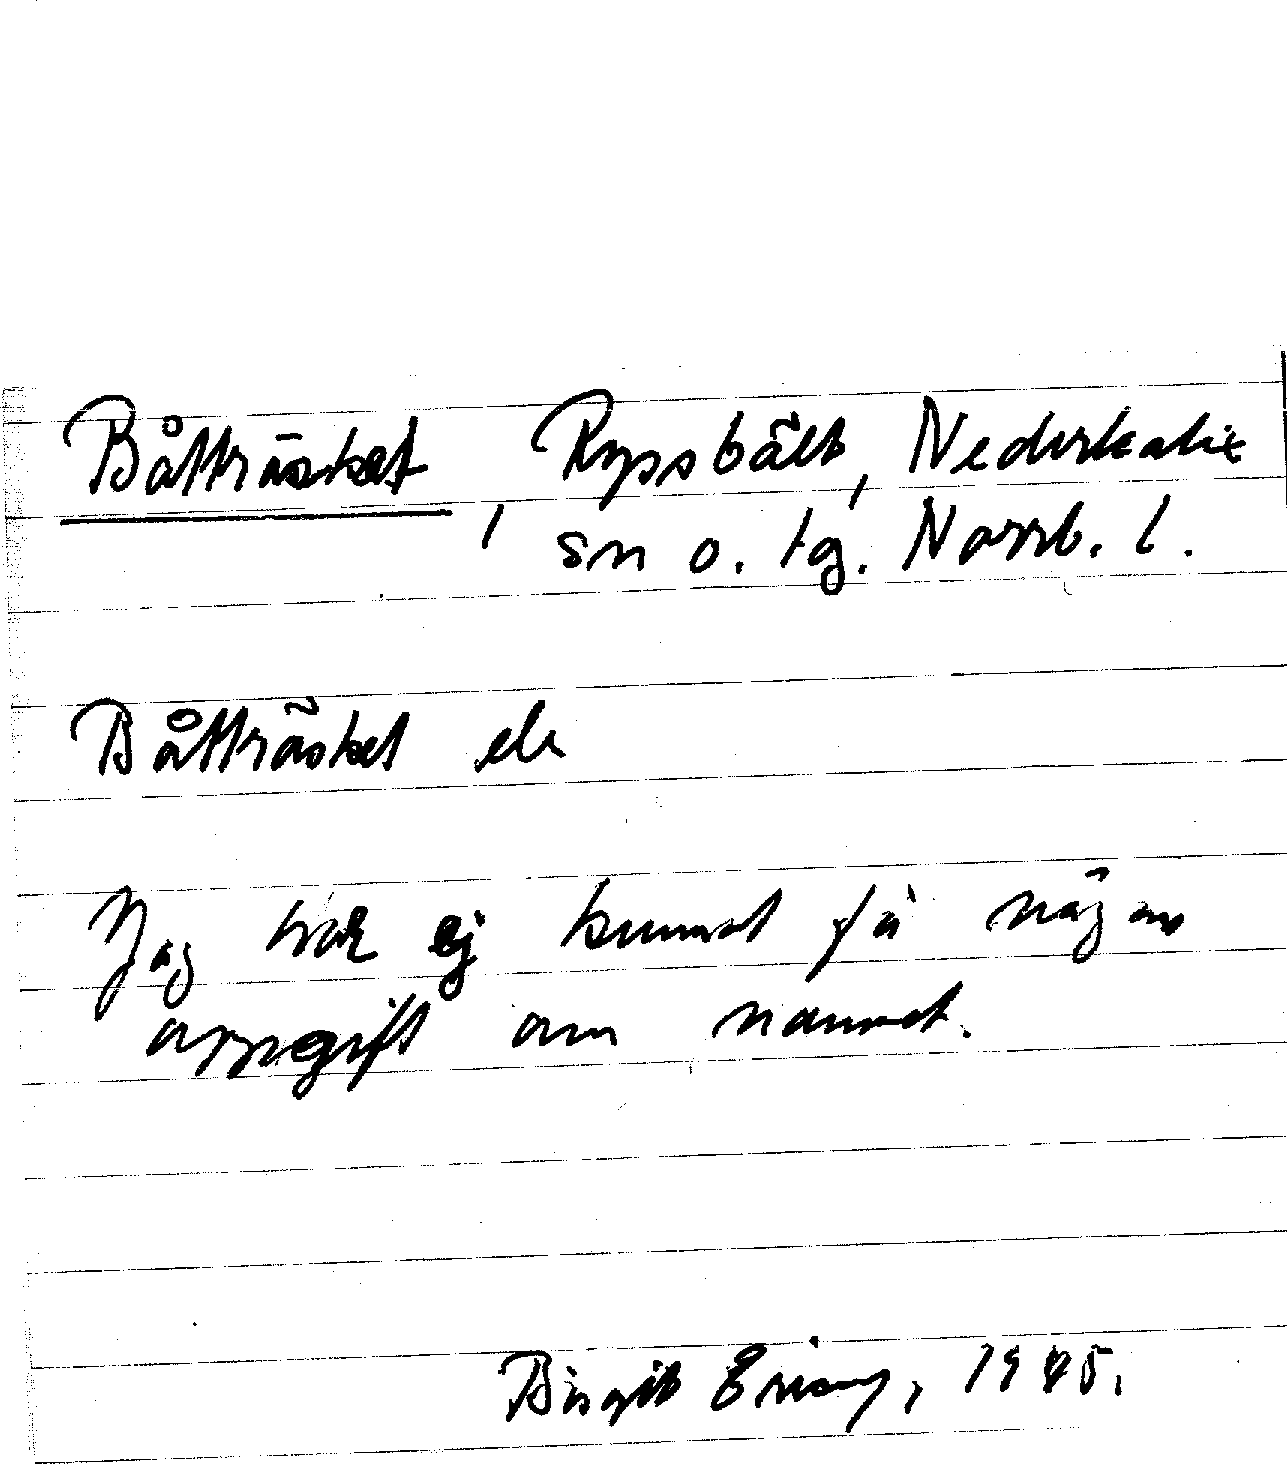 Båtträsket, Ryssbält, Nederkalix
sn o. tg. Norrb. l.
Båtträsket ek
Jag har ej kunnat få någon
uppgift om namnet.
Birgit 1945.